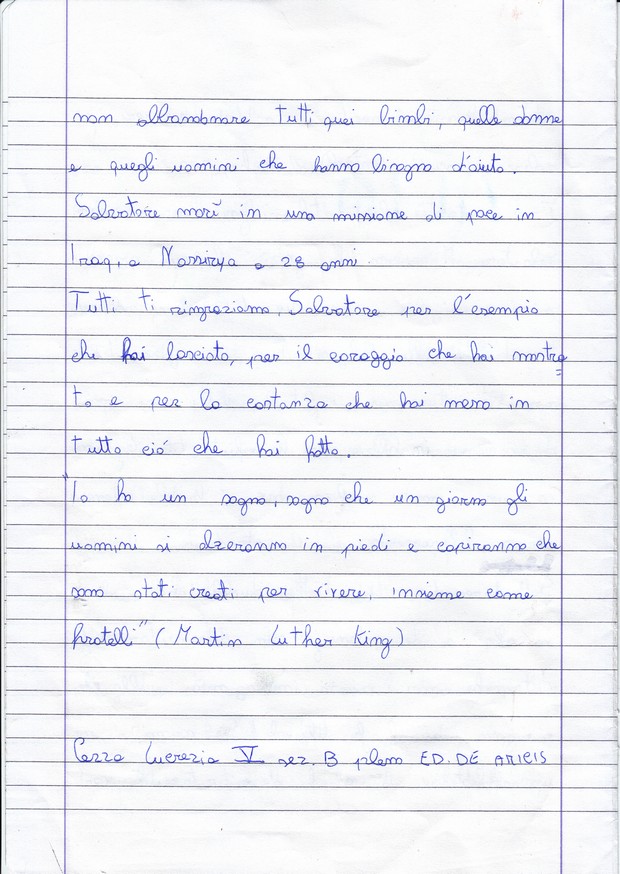 non abbandonare tutti quei bimbi, quelle donne
e quegli uomini che hanno bisogno d'aiuto.
Salvatore morì in una missione di pace in
Iraq, a Nassirya a 28 anni.
Tutti ti ringraziamo, Salvatore per l'esempio
che hai lasciato, per il coraggio che hai mostra=
to e per la costanza che hai messo in
tutto ció che hai fatto.
"Io ho un sogno, sogno che un giorno gli
uomini si alzeranno in piedi e capiranno che
sono stati creati per vivere, insieme come
fratelli" (Martin Luther King)
Lucrezia V sez. B plesso ED. DE AMICIS